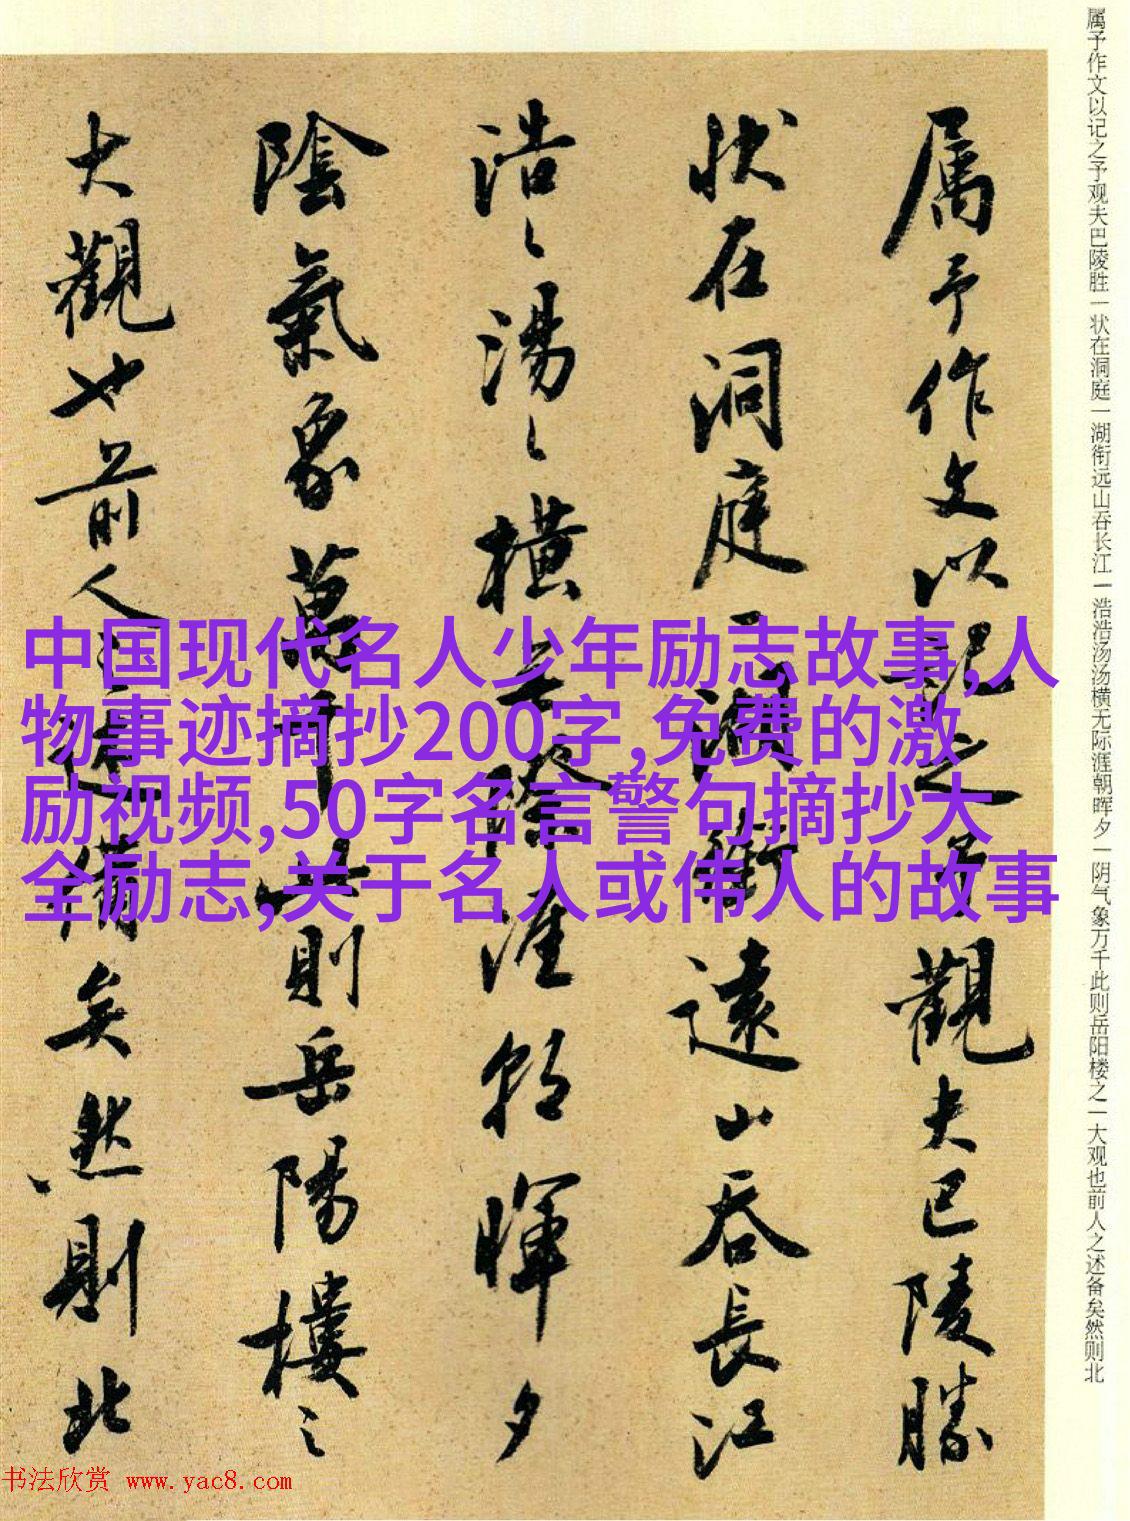 属予作文以记之予观夫巴陵胜一状在洞庭一湖衔远山吞长江一浩浩汤汤横无际涯朝晖夕一阴气象万千此则岳阳楼之一大观也前人之述备矣然则北
属予作文以记之予观夫巴陵勝
状在洞庭一湖衔遠山吞長江
浩〻湯〻橫无際涯朝暉夕
陰氣象萬千此則岳陽樓之
大觀也前人之述備矣然則北
中国现代名人少年励志故事,人
物事迹摘抄200字,免费的激
励视频,50字名言警句摘抄大
全励志,关于名人或伟人的故事
书法欣赏 www.yac8.com